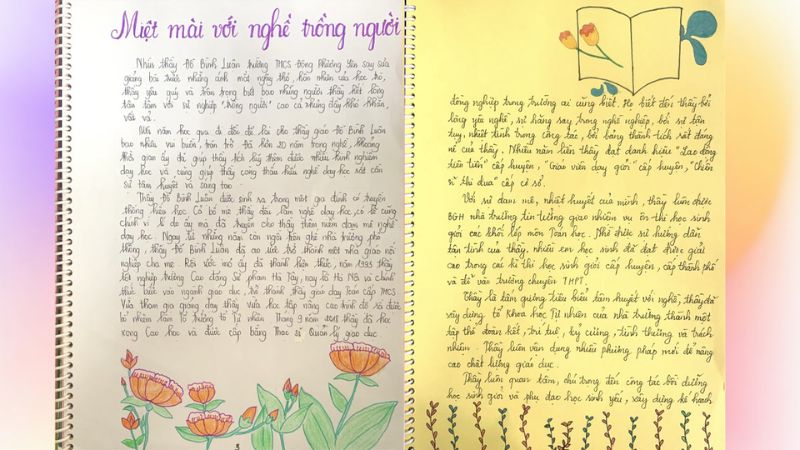 Miệt mài với nghề trồng người
Nhìn thầy Đỗ Bình Luân trường THCS Đông Phương Yên say sưa
giảng bài trước những ánh mắt ngây thơ, hồn nhiên của học trò,
thầy yêu quý và trân trọng biết bao những người thầy hết lòng
tận tâm với sự nghiệp "trồng người" cao cả nhưng đầy khó khăn,
vất vả.
Mỗi năm học qua đi đều để lại cho thầy giáo Đỗ Bình Luân
bao nhiêu vui buồn, trăn trở. Đã hơn 20 năm trong nghề, khoảng
thời gian ấy đã giúp thầy tích lũy thêm được nhiều kinh nghiệm
dạy học và cũng giúp thầy càng thấu hiểu nghề dạy học rất cần
sự tâm huyết và sáng tạo.
Thầy Đỗ Bình Luân được sinh ra trong một gia đình có truyền
thống hiếu học. Cả bố mẹ thầy đều làm nghề dạy học, có lẽ cũng
chính vì lí do ấy mà đã truyền cho thầy thêm niềm đam mê nghề
dạy học. Ngay từ những năm còn ngồi trên ghế nhà trường phổ
thông, thầy Đỗ Bình Luân đã ao ước trở thành một nhà giáo nối
nghiệp cha mẹ. Rồi ước mơ đã thành hiện thực, năm 1995 thầy
tốt nghiệp trường Cao đẳng Sư phạm Hà Tây, nay là Hà Nội và chính
thức bước vào ngành giáo dục, trở thành thầy giáo dạy Toán cấp THCS.
Vừa tham gia giảng dạy thầy vừa học lớp nâng cao trình độ và được
bổ nhiệm làm tổ trưởng tổ Tự nhiên. Tháng 9 năm 2018 thầy đã học
xong Cao học và được cấp bằng Thạc sĩ Quản lý giáo dục.
đồng nghiệp trong trường ai cũng biết. Họ biết đến thầy bởi
lòng yêu nghề, sự hăng say trong nghề nghiệp, bởi sự tận
tụy, nhiệt tình trong công tác, bởi bảng thành tích rất đáng
nể của thầy. Nhiều năm liền thầy đạt danh hiệu "Lao động
tiên tiến" cấp huyện, "Giáo viên dạy giỏi" cấp huyện, "Chiến
sĩ thi đua" cấp cơ sở.
Với sự đam mê, nhiệt huyết của mình, thầy luôn được
BGH nhà trường tin tưởng giao nhiệm vụ ôn thi học sinh
giỏi các khối lớp môn Toán học. Nhờ được sự hướng dẫn
tận tình của thầy, nhiều em học sinh đã đạt được giải
cao trong các kì thi học sinh giỏi cấp huyện, cấp thành phố
và đỗ vào trường chuyên THPT.
Thầy là tấm gương tiêu biểu tâm huyết với nghề, thầy đã
xây dựng tổ Khoa học Tự nhiên của nhà trường thành một
tập thể đoàn kết, trí tuệ, kỷ cương, tình thương và trách
nhiệm. Thầy luôn vận dụng nhiều phương pháp mới để nâng
cao chất lượng giáo dục.
Thầy luôn quan tâm, chú trọng đến công tác bồi dưỡng
học sinh giỏi và phụ đạo học sinh yếu, xây dựng kế hoạch